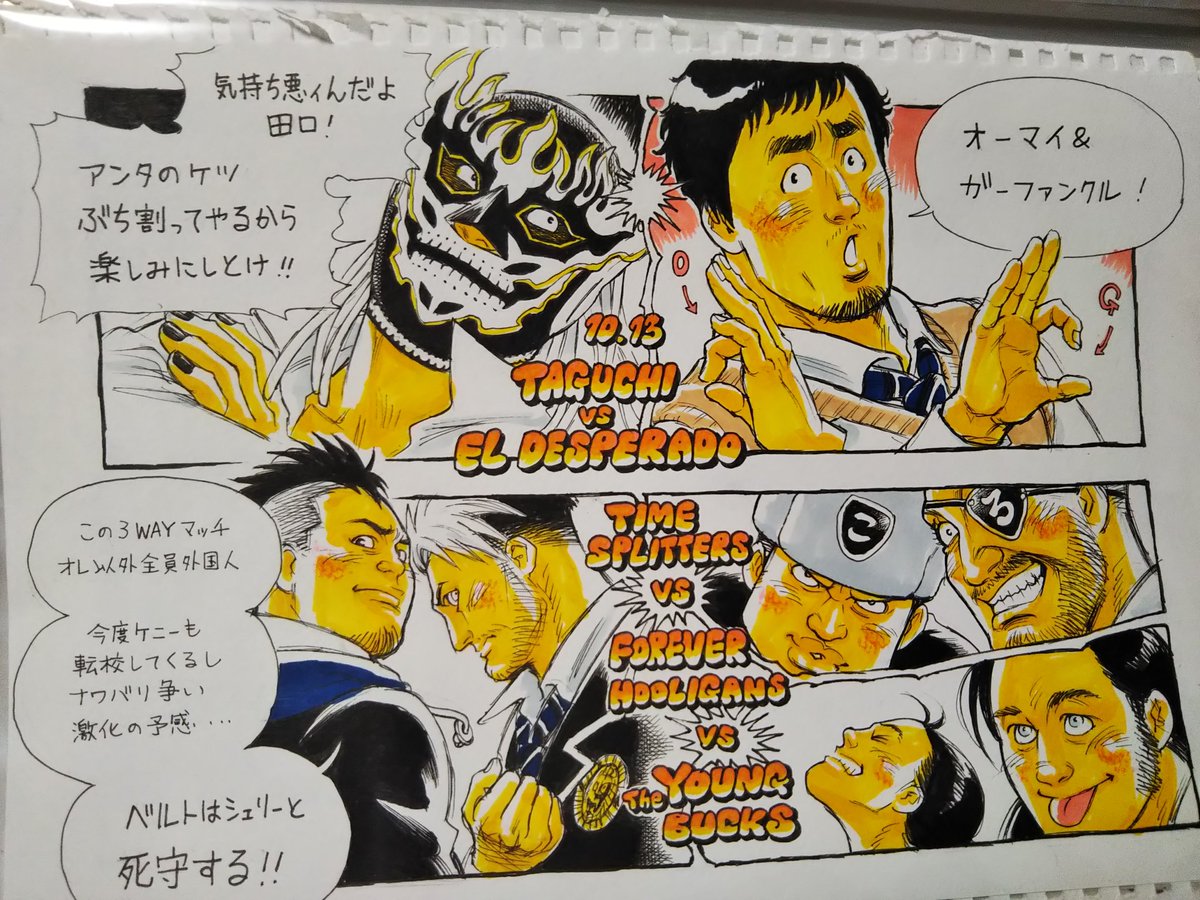 気持ち悪ィんだよ
田口!
アンタのケツ
ぶち割ってやるから
楽しみにしとけ!!
オーマイ&
ガーファンクル!
O
G
10.13
TAGUCHI
VS
EL DESPERADO
この3WAYマッチ
オレ以外全員外国人
今度ケニーも
転校してくるし
ナワバリ争い
激化の予感・・・・
ベルトはシェリーと
死守する!!
TIME
SPLITTERS
VS
FOREVER
HOOLIGANS
VS
The YOUNG
BUCKS
こ
ろ